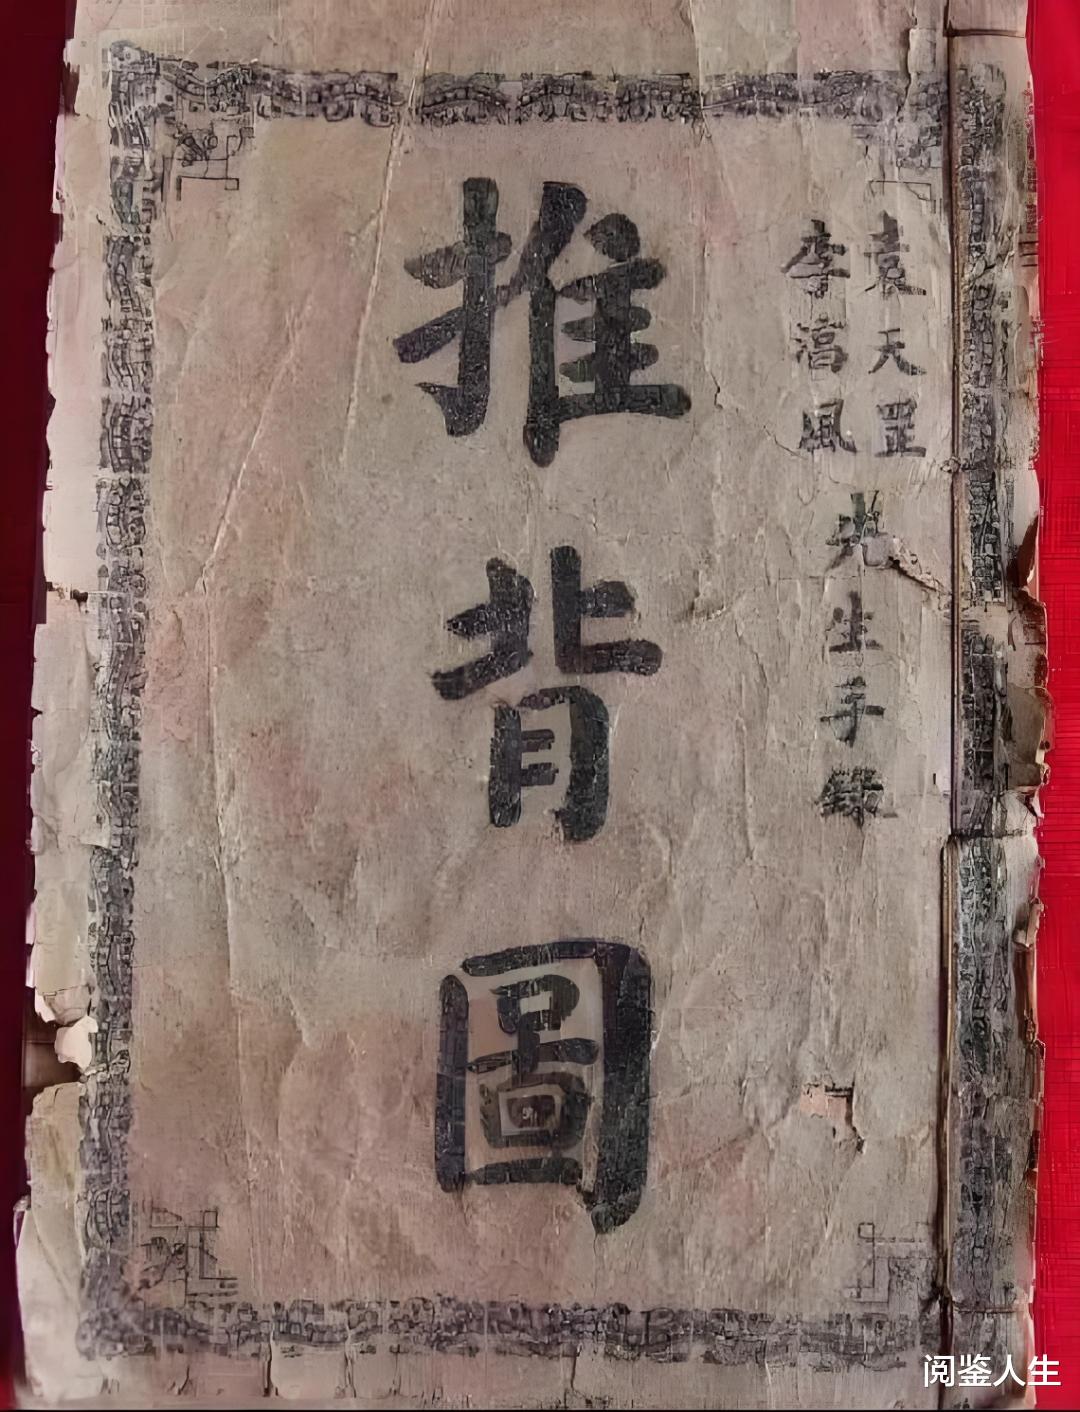 袁天罡
李淳風
先生手錄
推背圖
阅鉴人生